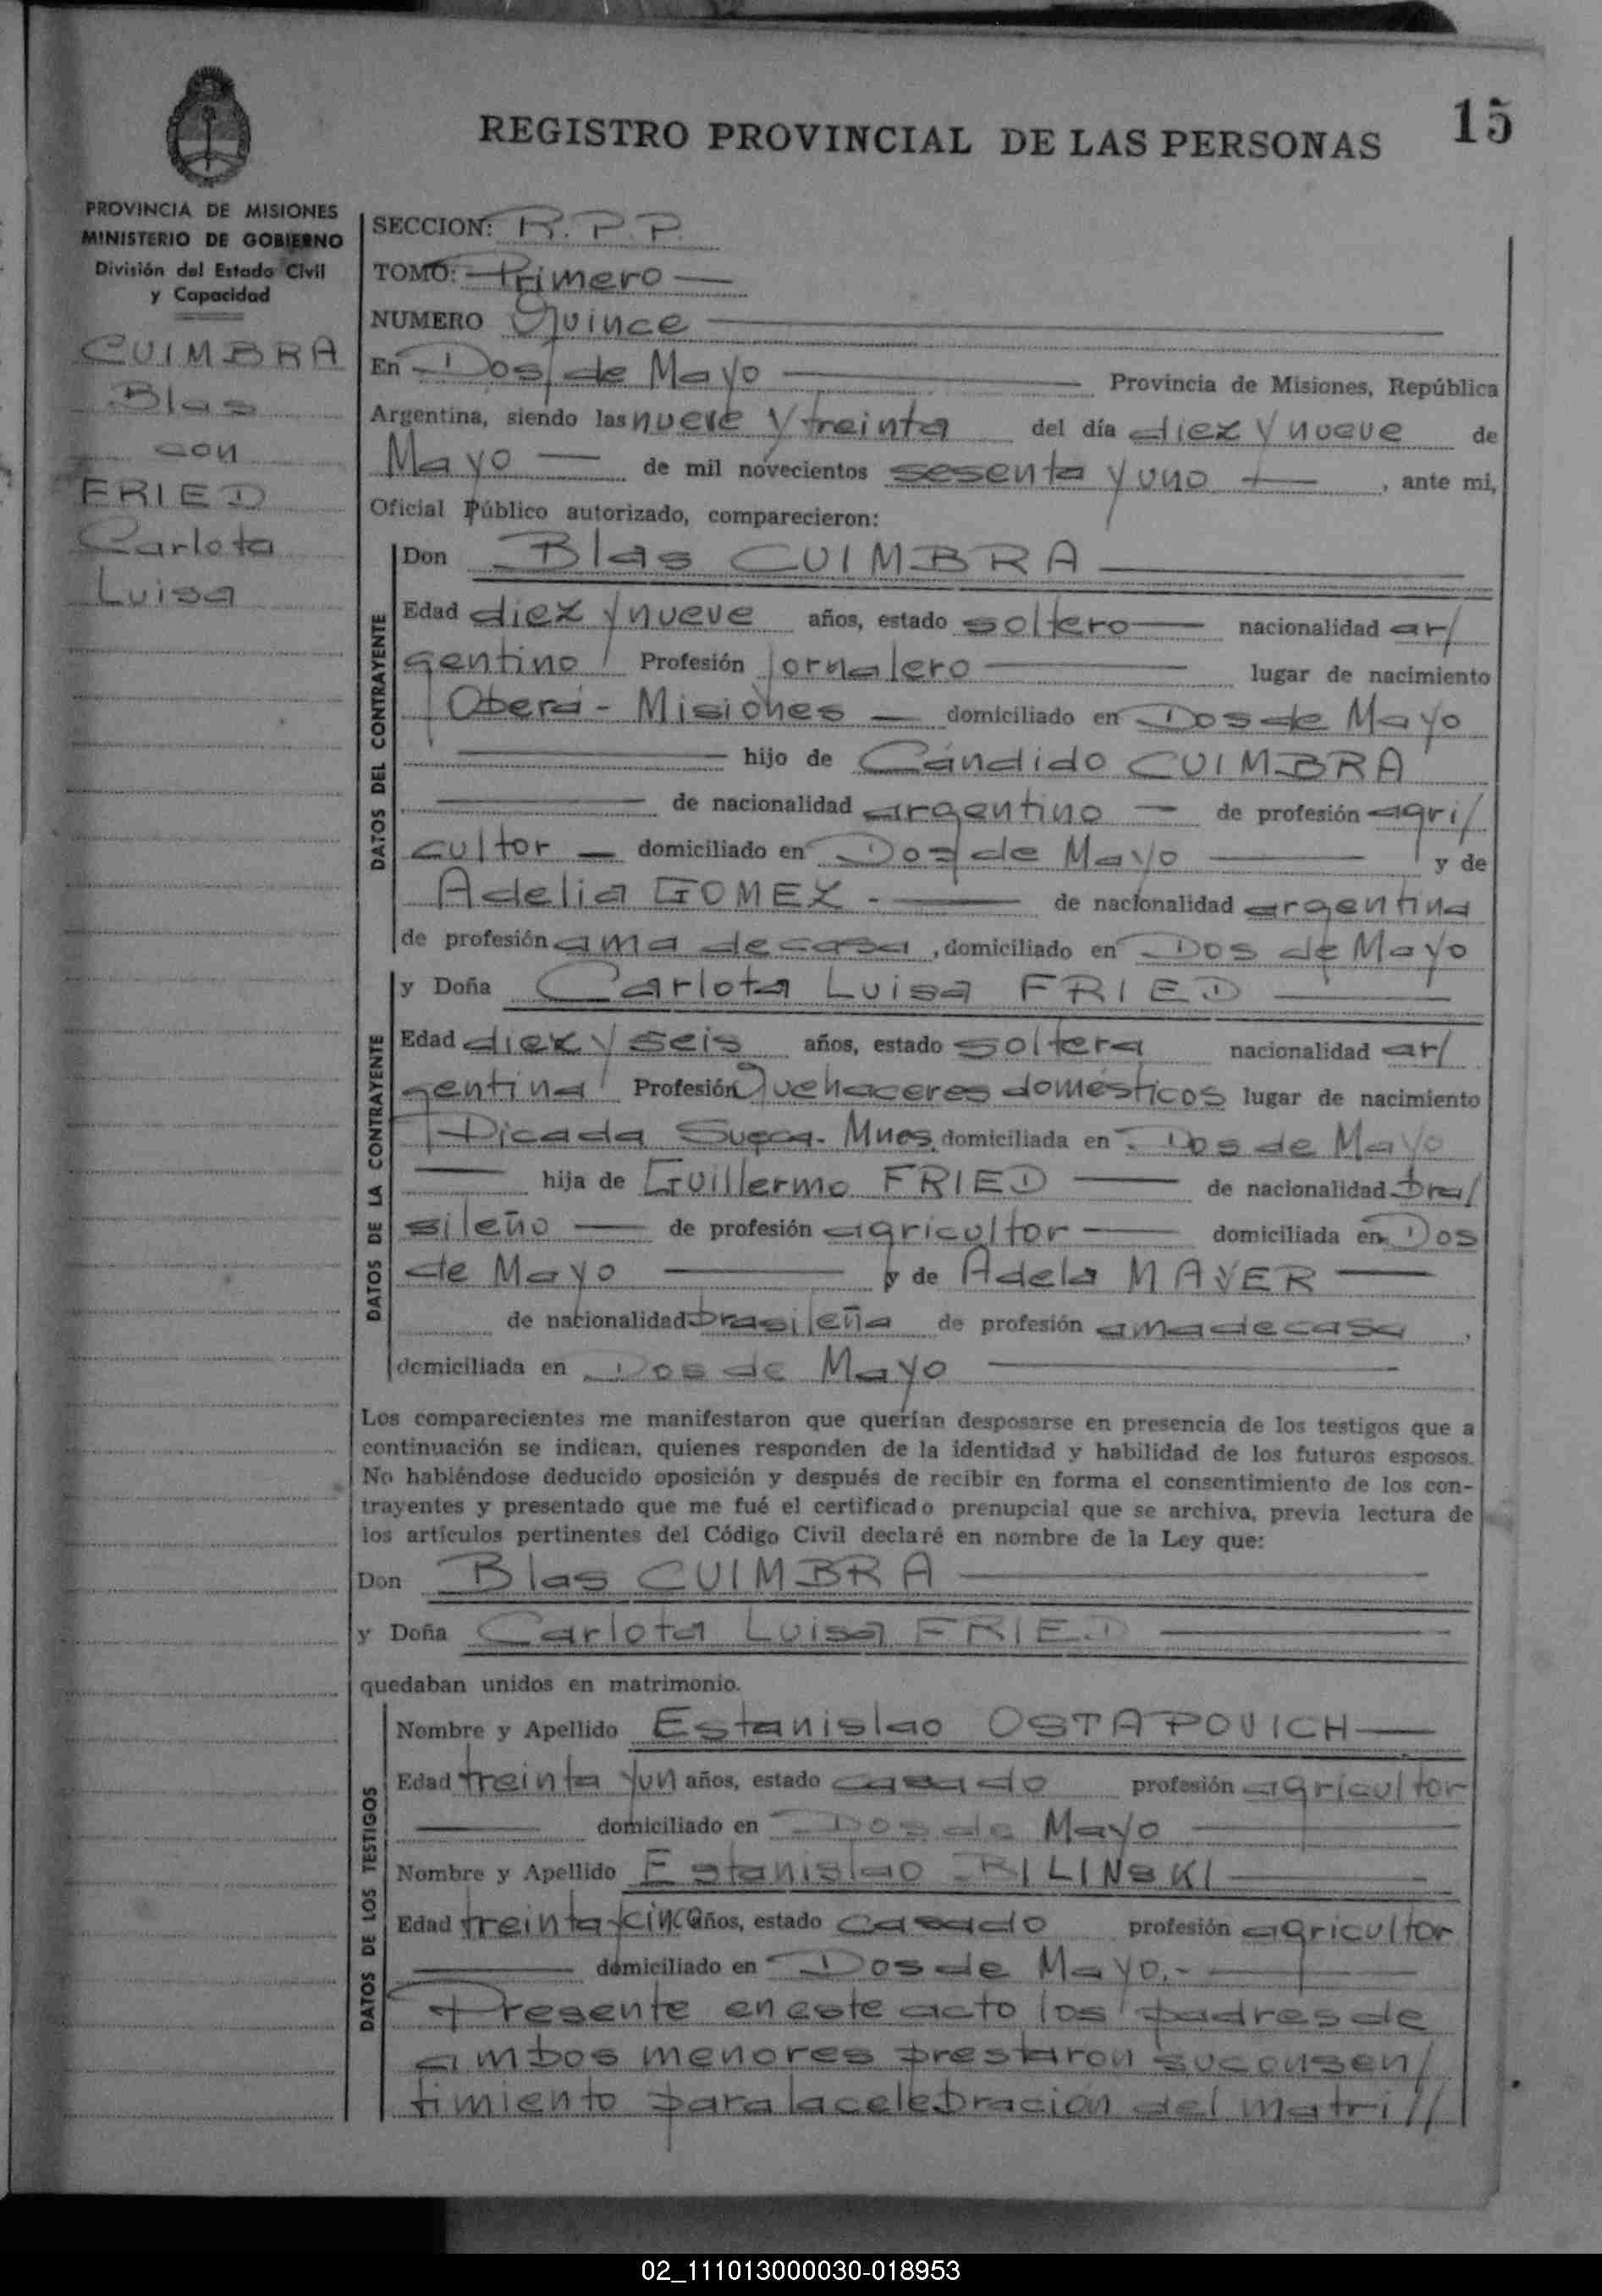 REGISTRO PROVINCIAL DE LAS PERSONAS
15
PROVINCIA DE MISIONES
MINISTERIO DE GOBIERNO
División del Estado Civil
y Capacidad
CUIMBRA
Blas
con
FRIED
Carlota
Luisa
SECCION: R. P. P.
TOMO: Primero
NUMERO Quince
En Dos de Mayo Provincia de Misiones, República
Argentina, siendo las nueve y treinta del día diez y nueve de
Mayo de mil novecientos sesenta y uno, ante mi,
Oficial Público autorizado, comparecieron:
DATOS DEL CONTRAYENTE
Don Blas CUIMBRA
Edad diez y nueve años, estado soltero nacionalidad ar/
gentino Profesión Jornalero lugar de nacimiento
Oberá - Misiones domiciliado en Dos de Mayo
hijo de Cándido CUIMBRA
de nacionalidad argentino de profesión agri/
cultor domiciliado en Dos de Mayo y de
Adelia GOMEZ.- de nacionalidad argentina
de profesión ama de casa, domiciliado en Dos de Mayo
DATOS DE LA CONTRAYENTE
y Doña Carlota Luisa FRIED
Edad diez y seis años, estado soltera nacionalidad ar/
gentina Profesión Quehaceres domésticos lugar de nacimiento
Picada Sueca- Mnes. domiciliada en Dos de Mayo
hija de Guillermo FRIED de nacionalidad bra/
sileño de profesión agricultor domiciliada en Dos
de Mayo y de Adela MAVER
de nacionalidad brasileña de profesión ama de casa,
domiciliada en Dos de Mayo
Los comparecientes me manifestaron que querían desposarse en presencia de los testigos que a
continuación se indican, quienes responden de la identidad y habilidad de los futuros esposos.
No habiéndose deducido oposición y después de recibir en forma el consentimiento de los con-
trayentes y presentado que me fué el certificado prenupcial que se archiva, previa lectura de
los artículos pertinentes del Código Civil declaré en nombre de la Ley que:
Don Blas CUIMBRA
y Doña Carlota Luisa FRIED
quedaban unidos en matrimonio.
DATOS DE LOS TESTIGOS
Nombre y Apellido Estanislao OSTAPOVICH
Edad treinta y un años, estado casado profesión agricultor
domiciliado en Dos de Mayo
Nombre y Apellido Estanislao BILINSKI
Edad treinta y cinco años, estado casado profesión agricultor
domiciliado en Dos de Mayo.-
Presente en este acto los padres de
ambos menores prestaron su consen/
timiento para la celebración del matri//
02_111013000030-018953